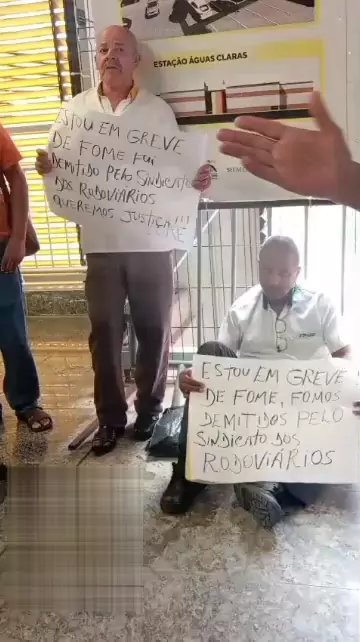 ESTAÇÃO ÁGUAS CLARAS
ESTOU EM GREVE
DE FOME FUI
DEMITIDO PELO SINDICATO
DOS RODOVIÁRIOS
QUEREMOS JUSTIÇA!!!
ESTOU EM GREVE
DE FOME, FOMOS
DEMITIDOS PELO
SINDICATO DOS
RODOVIÁRIOS